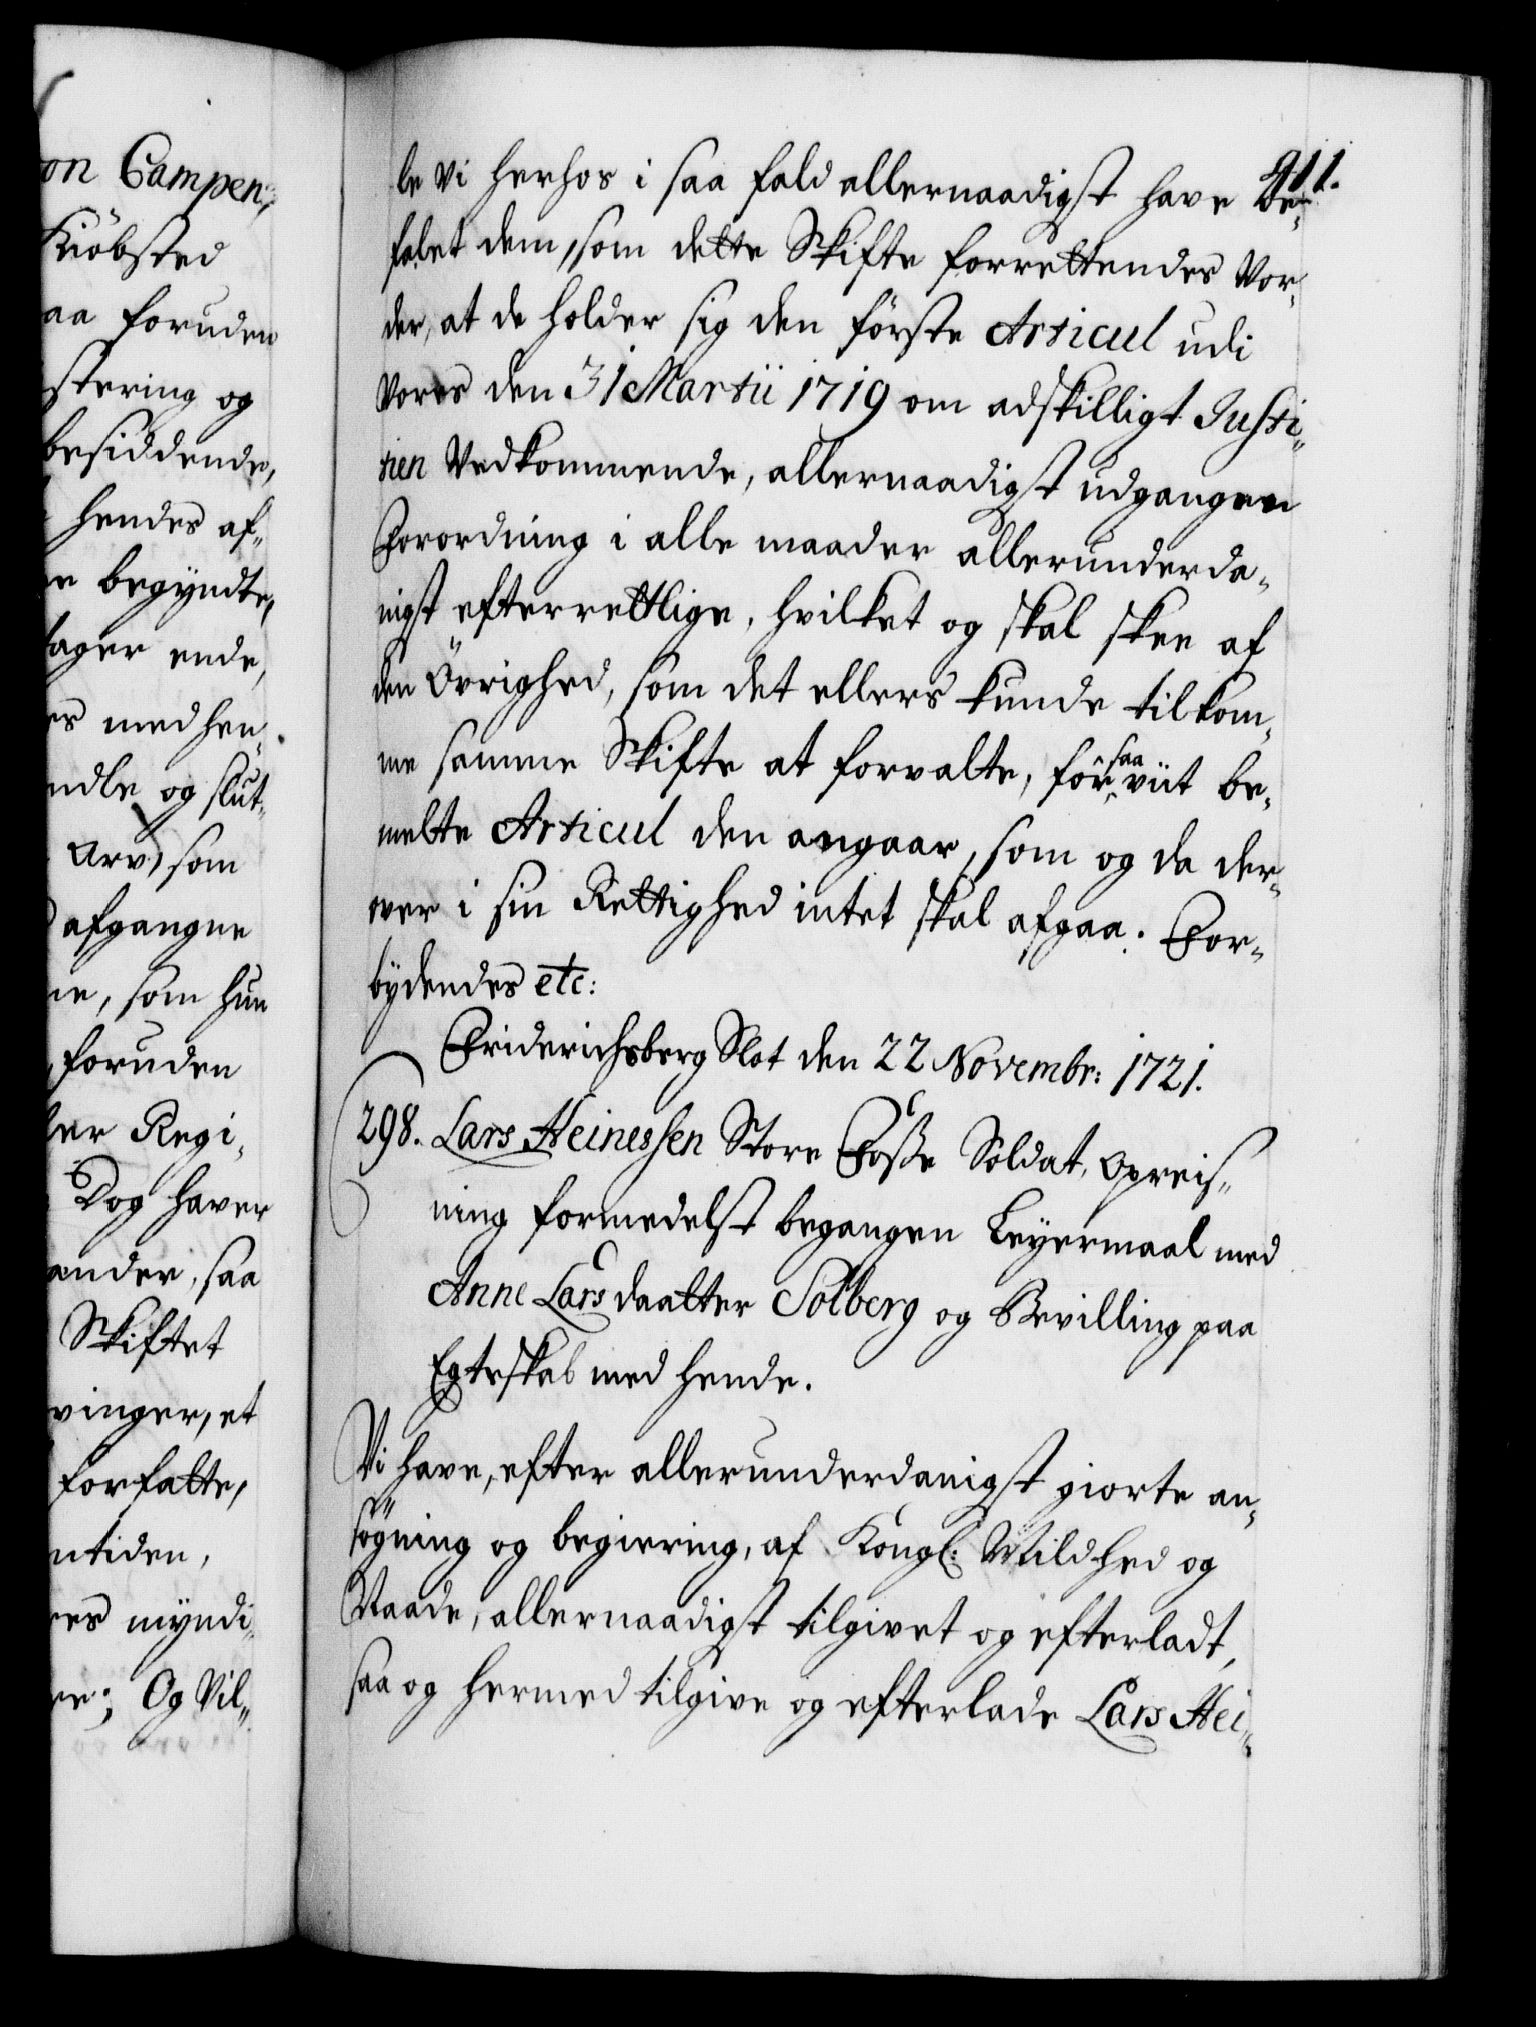 on Campen,
Kiöbsted
aa foruden
stering og
besiddende,
hendes af-
begyndte,
tager ende,
es med hen
ndle og slut-
Arv, som
afgangne
ne, som hun
foruden
ler Regi-
Dog haver
ander, saa
Skiftet
vinger, et
forfatte,
ntiden,
res myndi-
Og Vil-
911.
le Vi herhos i saa fald allernaadigst have Be-
falet dem, som dette Skifte forrettendes Vor-
der, at de holder sig den förste Articul udi
Vores den 31 Martii 1719 om adskilligt Justi-
tien Vedkommende, allernaadigst udgangen
Forordning i alle maader allerunderda-
nigst efterrettlige, hvilket og skal skee af
den Övrighed, som det ellers kunde tilkom-
me samme Skifte at forvalte, for saa viit be-
melte Articul den angaar, som og da der-
over i sin Rettighed intet skal afgaa. For-
bydendes etc:
Friderichsberg Slot den 22 Novembr: 1721.
298. Lars Heinessen Store Fosse Soldat, Opreis-
ning formedelst begangen Leyermaal med
Anne Lars daatter Solberg og Bevilling paa
Egteskab med hende.
Vi have, efter allerunderdanigst giorte an-
sögning og begiering, af Kongl: Mildhed og
Naade, allernaadigst tilgivet og efterladt,
saa og hermed tilgive og efterlade Lars Hei-